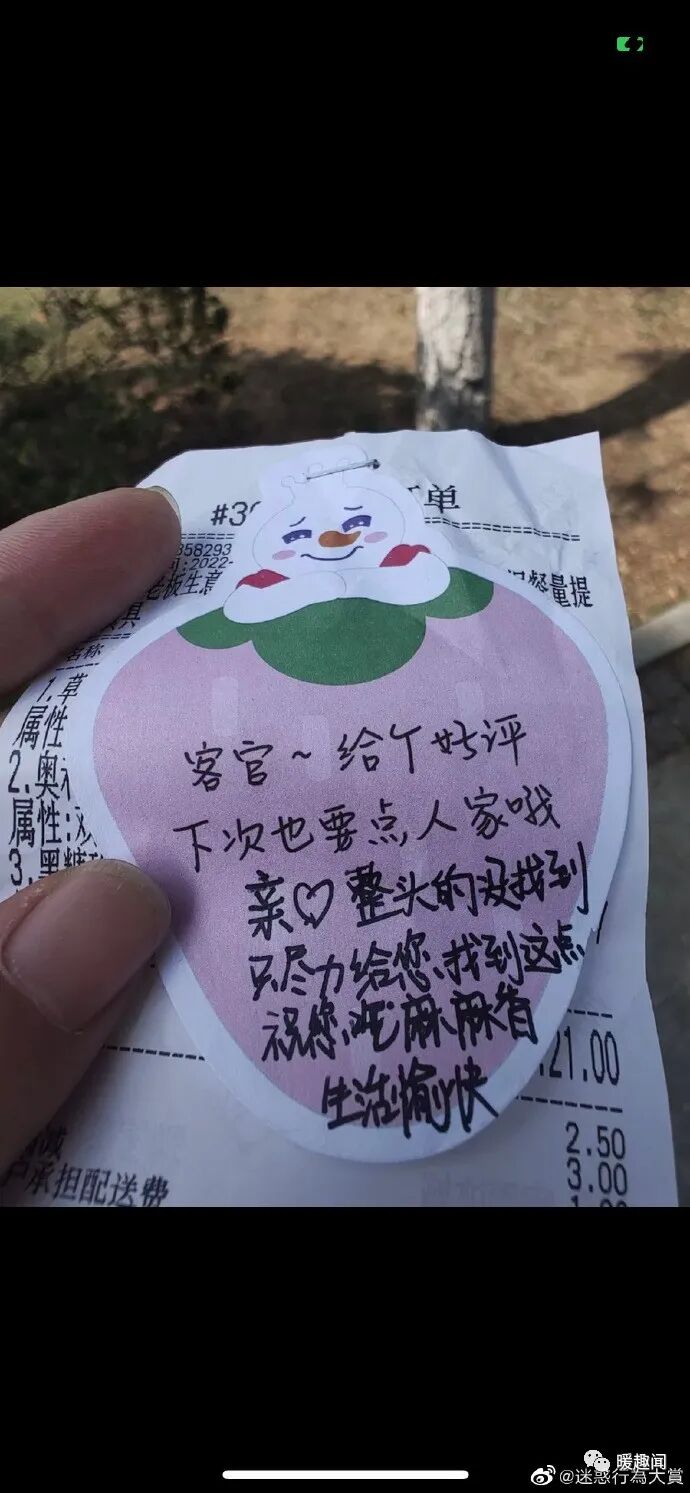 #3
单
358293
:2022-
老板生意
餐量提
具
名称
1.草
属性
2.奥
属性:
3.黑糖
客官~给个好评
下次也要点人家哦
亲♡整头的没找到
只尽力给您找到这点
祝您吃麻麻香
生活愉快
21.00
减
2.50
户承担配送费
3.00
暖趣闻
@迷惑行為大賞